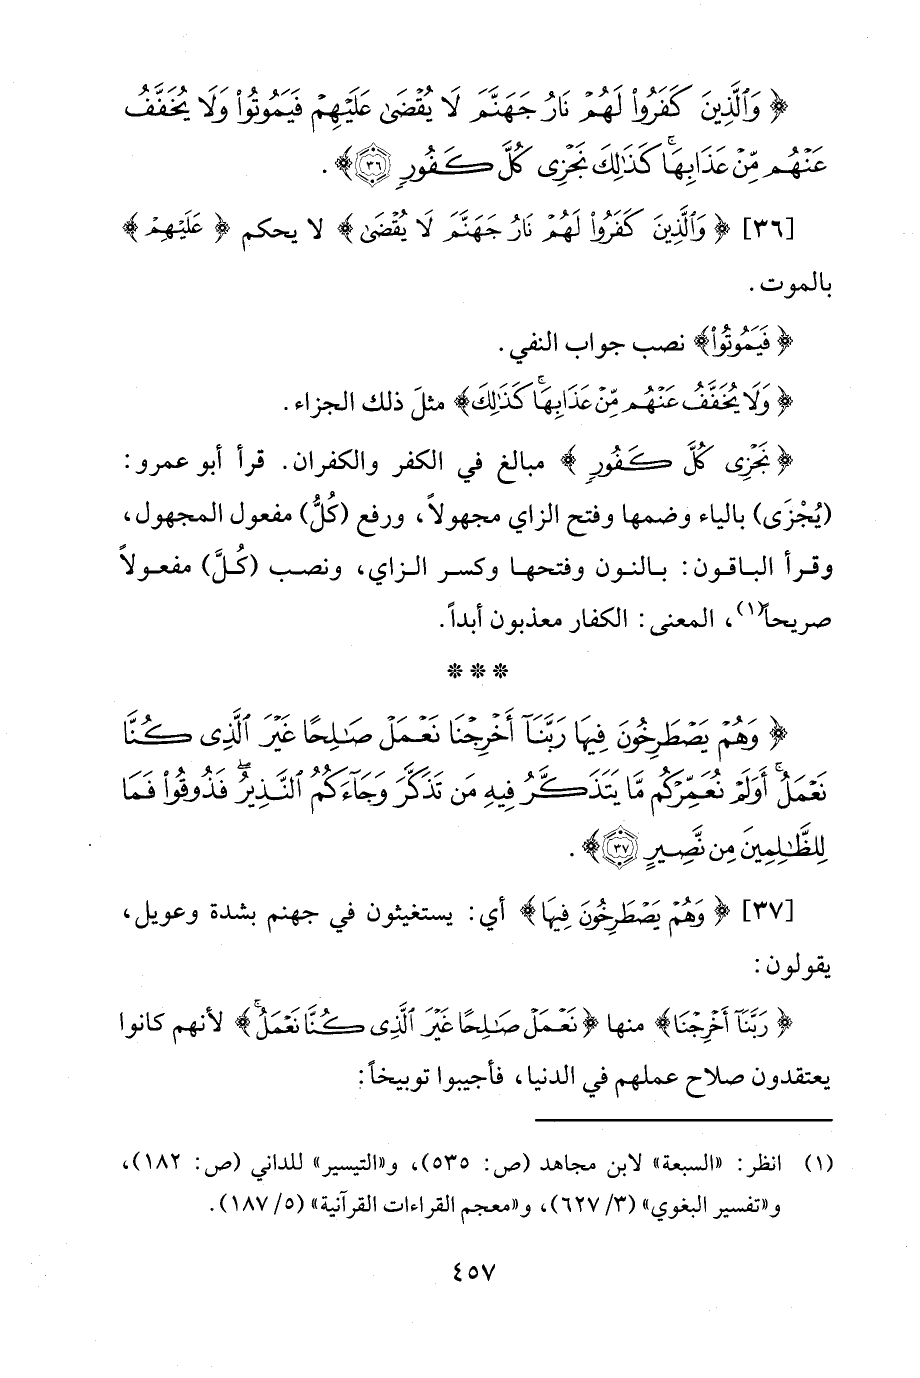 ﴿ وَٱلَّذِينَ كَفَرُوا۟ لَهُمْ نَارُ جَهَنَّمَ لَا يُقْضَىٰ عَلَيْهِمْ فَيَمُوتُوا۟ وَلَا يُخَفَّفُ
عَنْهُم مِّنْ عَذَابِهَا ۚ كَذَٰلِكَ نَجْزِى كُلَّ كَفُورٍ ٣٦ ﴾ .
[٣٦] ﴿ وَٱلَّذِينَ كَفَرُوا۟ لَهُمْ نَارُ جَهَنَّمَ لَا يُقْضَىٰ ﴾ لا يحكم ﴿ عَلَيْهِمْ ﴾
بالموت .
﴿ فَيَمُوتُوا۟ ﴾ نصب جواب النفي .
﴿ وَلَا يُخَفَّفُ عَنْهُم مِّنْ عَذَابِهَا ۚ كَذَٰلِكَ ﴾ مثلَ ذلك الجزاء .
﴿ نَجْزِى كُلَّ كَفُورٍ ﴾ مبالغ في الكفر والكفران. قرأ أبو عمرو:
(يُجْزَى) بالياء وضمها وفتح الزاي مجهولاً، ورفع (كُلُّ) مفعول المجهول،
وقرأ الباقون: بالنون وفتحها وكسر الزاي، ونصب (كُلَّ) مفعولاً
صريحاً(١)، المعنى: الكفار معذبون أبداً.
* * *
﴿ وَهُمْ يَصْطَرِخُونَ فِيهَا رَبَّنَآ أَخْرِجْنَا نَعْمَلْ صَـٰلِحًا غَيْرَ ٱلَّذِى كُنَّا
نَعْمَلُ ۚ أَوَلَمْ نُعَمِّرْكُم مَّا يَتَذَكَّرُ فِيهِ مَن تَذَكَّرَ وَجَآءَكُمُ ٱلنَّذِيرُ ۖ فَذُوقُوا۟ فَمَا
لِلظَّـٰلِمِينَ مِن نَّصِيرٍ ٣٧ ﴾ .
[٣٧] ﴿ وَهُمْ يَصْطَرِخُونَ فِيهَا ﴾ أي: يستغيثون في جهنم بشدة وعويل،
يقولون:
﴿ رَبَّنَآ أَخْرِجْنَا ﴾ منها ﴿ نَعْمَلْ صَـٰلِحًا غَيْرَ ٱلَّذِى كُنَّا نَعْمَلُ ۚ ﴾ لأنهم كانوا
يعتقدون صلاح عملهم في الدنيا، فأجيبوا توبيخاً:
(١) انظر: «السبعة» لابن مجاهد (ص: ٥٣٥)، و«التيسير» للداني (ص: ١٨٢)،
و«تفسير البغوي» (٣/ ٦٢٧)، و«معجم القراءات القرآنية» (٥/ ١٨٧).
٤٥٧